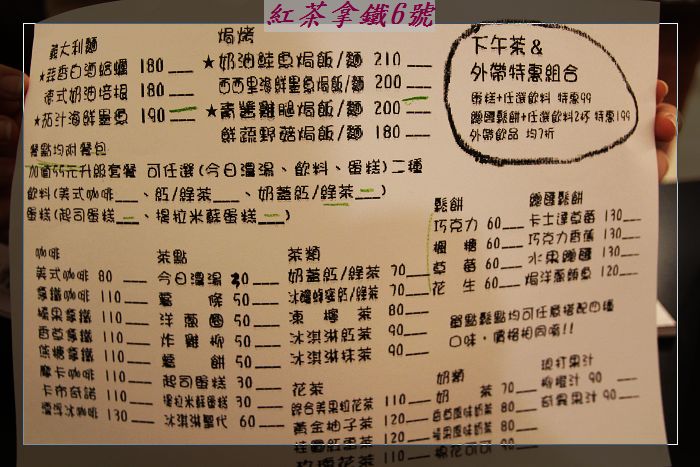 紅茶拿鐵6號
義大利麵
★蒜香白酒蛤蠣 180
德式奶油培根 180
★茄汁海鮮墨魚 190
焗烤
★奶油鮭魚焗飯/麵 210
西西里海鮮墨魚焗飯/麵 200
★青醬雞腿焗飯/麵 200
鮮蔬野菇焗飯/麵 180
下午茶&
外帶特惠組合
蛋糕+任選飲料 特惠99
雕國鬆餅+任選飲料2杯 特惠199
外帶飲品 均7折
餐點均附餐包
加價65元升級套餐 可任選(今日濃湯、飲料、蛋糕)二種
飲料(美式咖啡___、紅/綠茶___、奶蓋紅/綠茶___)
蛋糕(起司蛋糕___、提拉米蘇蛋糕___)
咖啡
美式咖啡 80
拿鐵咖啡 110
榛果拿鐵 110
香草拿鐵 110
焦糖拿鐵 110
摩卡咖啡 110
卡布奇諾 110
漂浮冰咖啡 130
茶點
今日濃湯 30
薯條 50
洋蔥圈 50
炸雞柳 50
薯餅 50
起司蛋糕 30
提拉米蘇蛋糕 30
冰淇淋聖代 60
茶類
奶蓋紅/綠茶 70
冰釀蜂蜜紅/綠茶 70
凍檸茶 80
冰淇淋紅茶 90
冰淇淋抹茶 90
花茶
綜合美果粒花茶 110
黃金柚子茶 120
桂圓紅棗茶 120
玫瑰花茶 110
鬆餅
巧克力 60
楓糖 60
草莓 60
花生 60
鬆餅
卡士達草莓 130
巧克力香蕉 130
水果 130
焗洋蔥鮪魚 120
單點鬆餅均可任意搭配四種
口味，價格相同唷!!
奶類
奶茶 70
香草風味奶茶 80
榛果風味奶茶 80
棉花可可 90
現打果汁
柳橙汁 90
奇異果汁 90